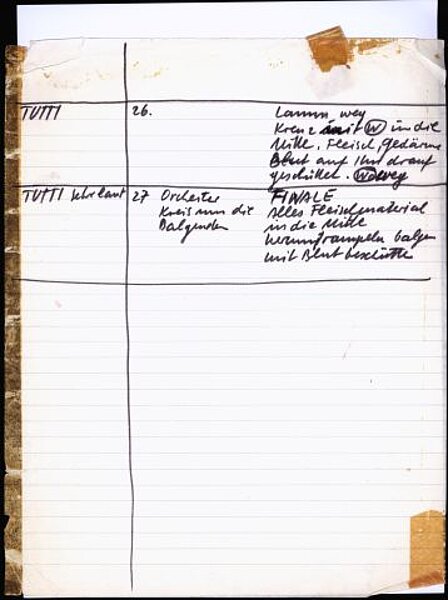 TUTTI 26. Lamm, weg
Kreuz mit W in die
Mitte. Fleisch, Gedärme
Blut auf Ihn drauf
geschüttet. weg
TUTTI sehr laut 27 Orchester FINALE
Kreis um die Alles Fleischmaterial
Balgenden in die Mitte
herumtrampeln balgen
mit Blut beschütten